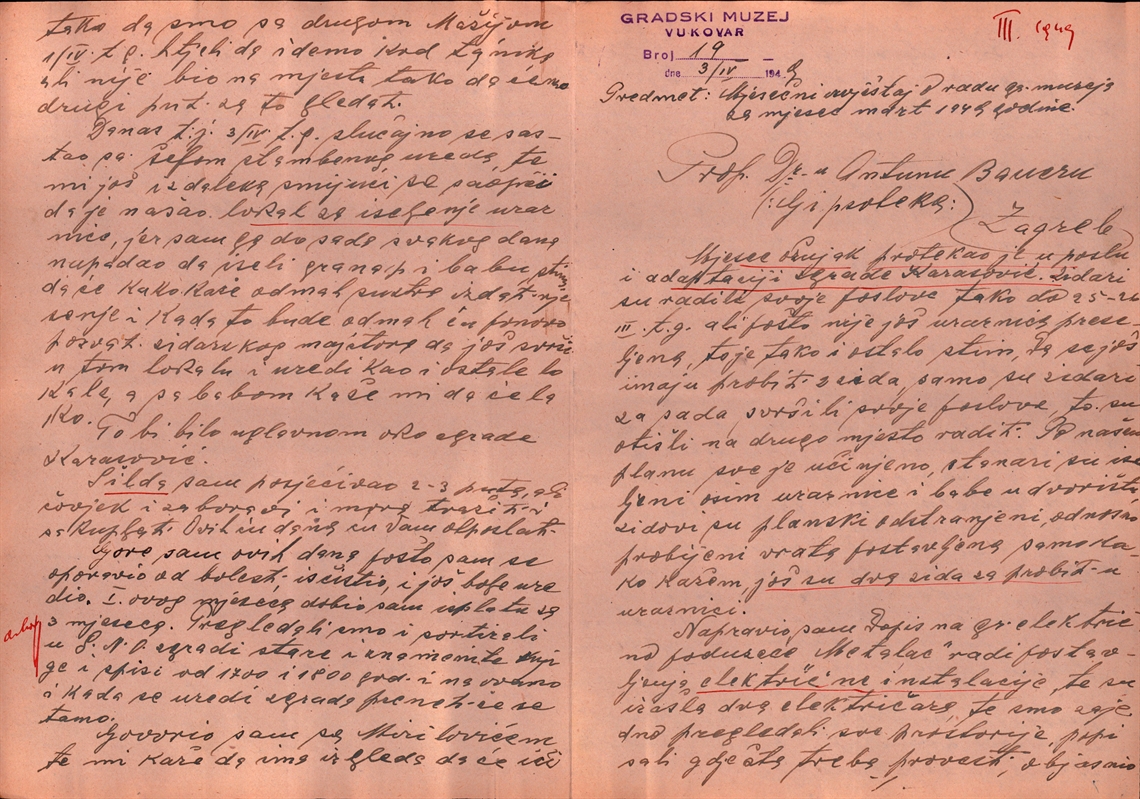 GRADSKI MUZEJ
VUKOVAR
Broj 19
dne 3/IV 1949
III. 1949
Predmet: Mjesečni izvještaj o radu gr. muzeja
za mjesec mart 1949 godine.
Prof. Dr-u Antunu Baueru
/:Gipsoteka:/
Zagreb
Mjesec ožujak protekao je u poslu
i adaptaciji zgrade Karasović. Zidari
su radili svoje poslove tako do 25-26
III. t.g. ali pošto nije još urarnica prese-
ljena, to je tako i ostalo stim, da se još
imaju probit 2 zida, samo su zidari
za sada svršili svoje poslove, to su
otišli na drugo mjesto radit. Po našem
planu sve je učinjeno, stanari su ise
ljeni osim urarnice i babe u dvorištu
zidovi su planski odstranjeni, odnosno
probijeni vrata postavljena samo ka-
ko kažem, još su dva zida za probit u
urarnici.
Napravio sam Dopis na gr. električ
no poduzeće "Metalac" radi postav-
ljanja električne instalacije, te su
izašla dva električara te smo zaje
dno pregledali sve prostorije, popi
sali gdje šta treba provesti, objasnio
tako da smo sa drugom
1/IV. t.g. htjeli da idemo kod
ali nije bio na mjestu tako da ćemo
drugi put za to gledat.
Danas t.j. 3/IV. t.g. slučajno se sas-
tao sa šefom stambenog ureda, te
mi još izdaleka smijući se saopći
da je našao lokal za iseljenje urar
nice, jer sam ga do sada svakog dana
napadao da iseli granap i babu
da će kako kaže odmah sustra izdat rje
šenje i kada to bude odmah ću ponovo
pozvat zidarskog majstora da još svrši
u tom lokalu i uredi kao i ostale lo
kale, a sa babom kaže mi da će la
ko.
To bi bilo uglavnom oko zgrade
Karasović.
Šilda sam posjećivao 2-3 puta, ali
čovjek i zaboravi i mora tražit i
sakupljat. Ovih ću dana ću Vam otposlat.
Gore sam ovih dana pošto sam se
oporavio od bolesti isčistio, i još bolje ure
dio. I. ovog mjeseca dobio sam uplatu za
3 mjeseca. Pregledali smo i sortirali
u G.N.O. zgradi stare i znamenite knji
ge i spisi od 1700 i 1800 god. i na ovamo
i kada se uredi zgrada prenet će se
tamo.
Govorio sam sa Mirilovićem
te mi kaže da ima izgleda da će ići